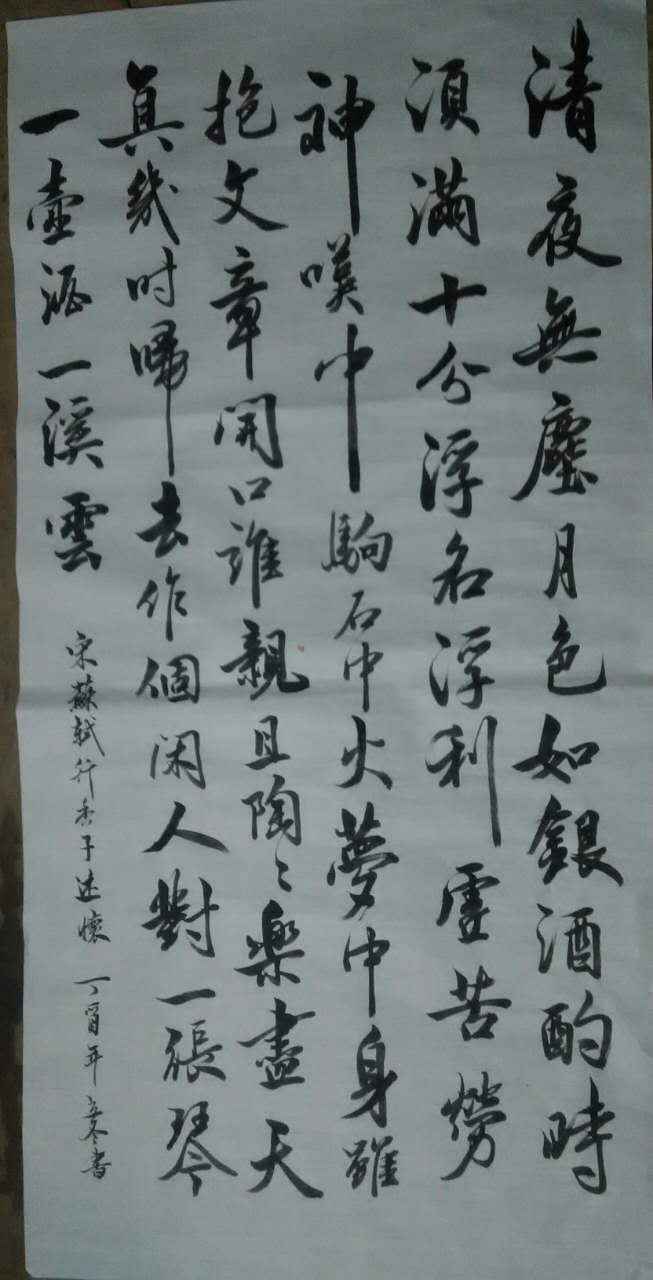 清夜無塵月色如銀酒酌時
須滿十分浮名浮利虛苦勞
神嘆中駒石中火夢中身雖
抱文章開口誰親且陶〻樂盡天
真幾時歸去作個闲人對一張琴
一壺酒一溪雲
宋蘇軾行香子述懷 丁酉年立冬書